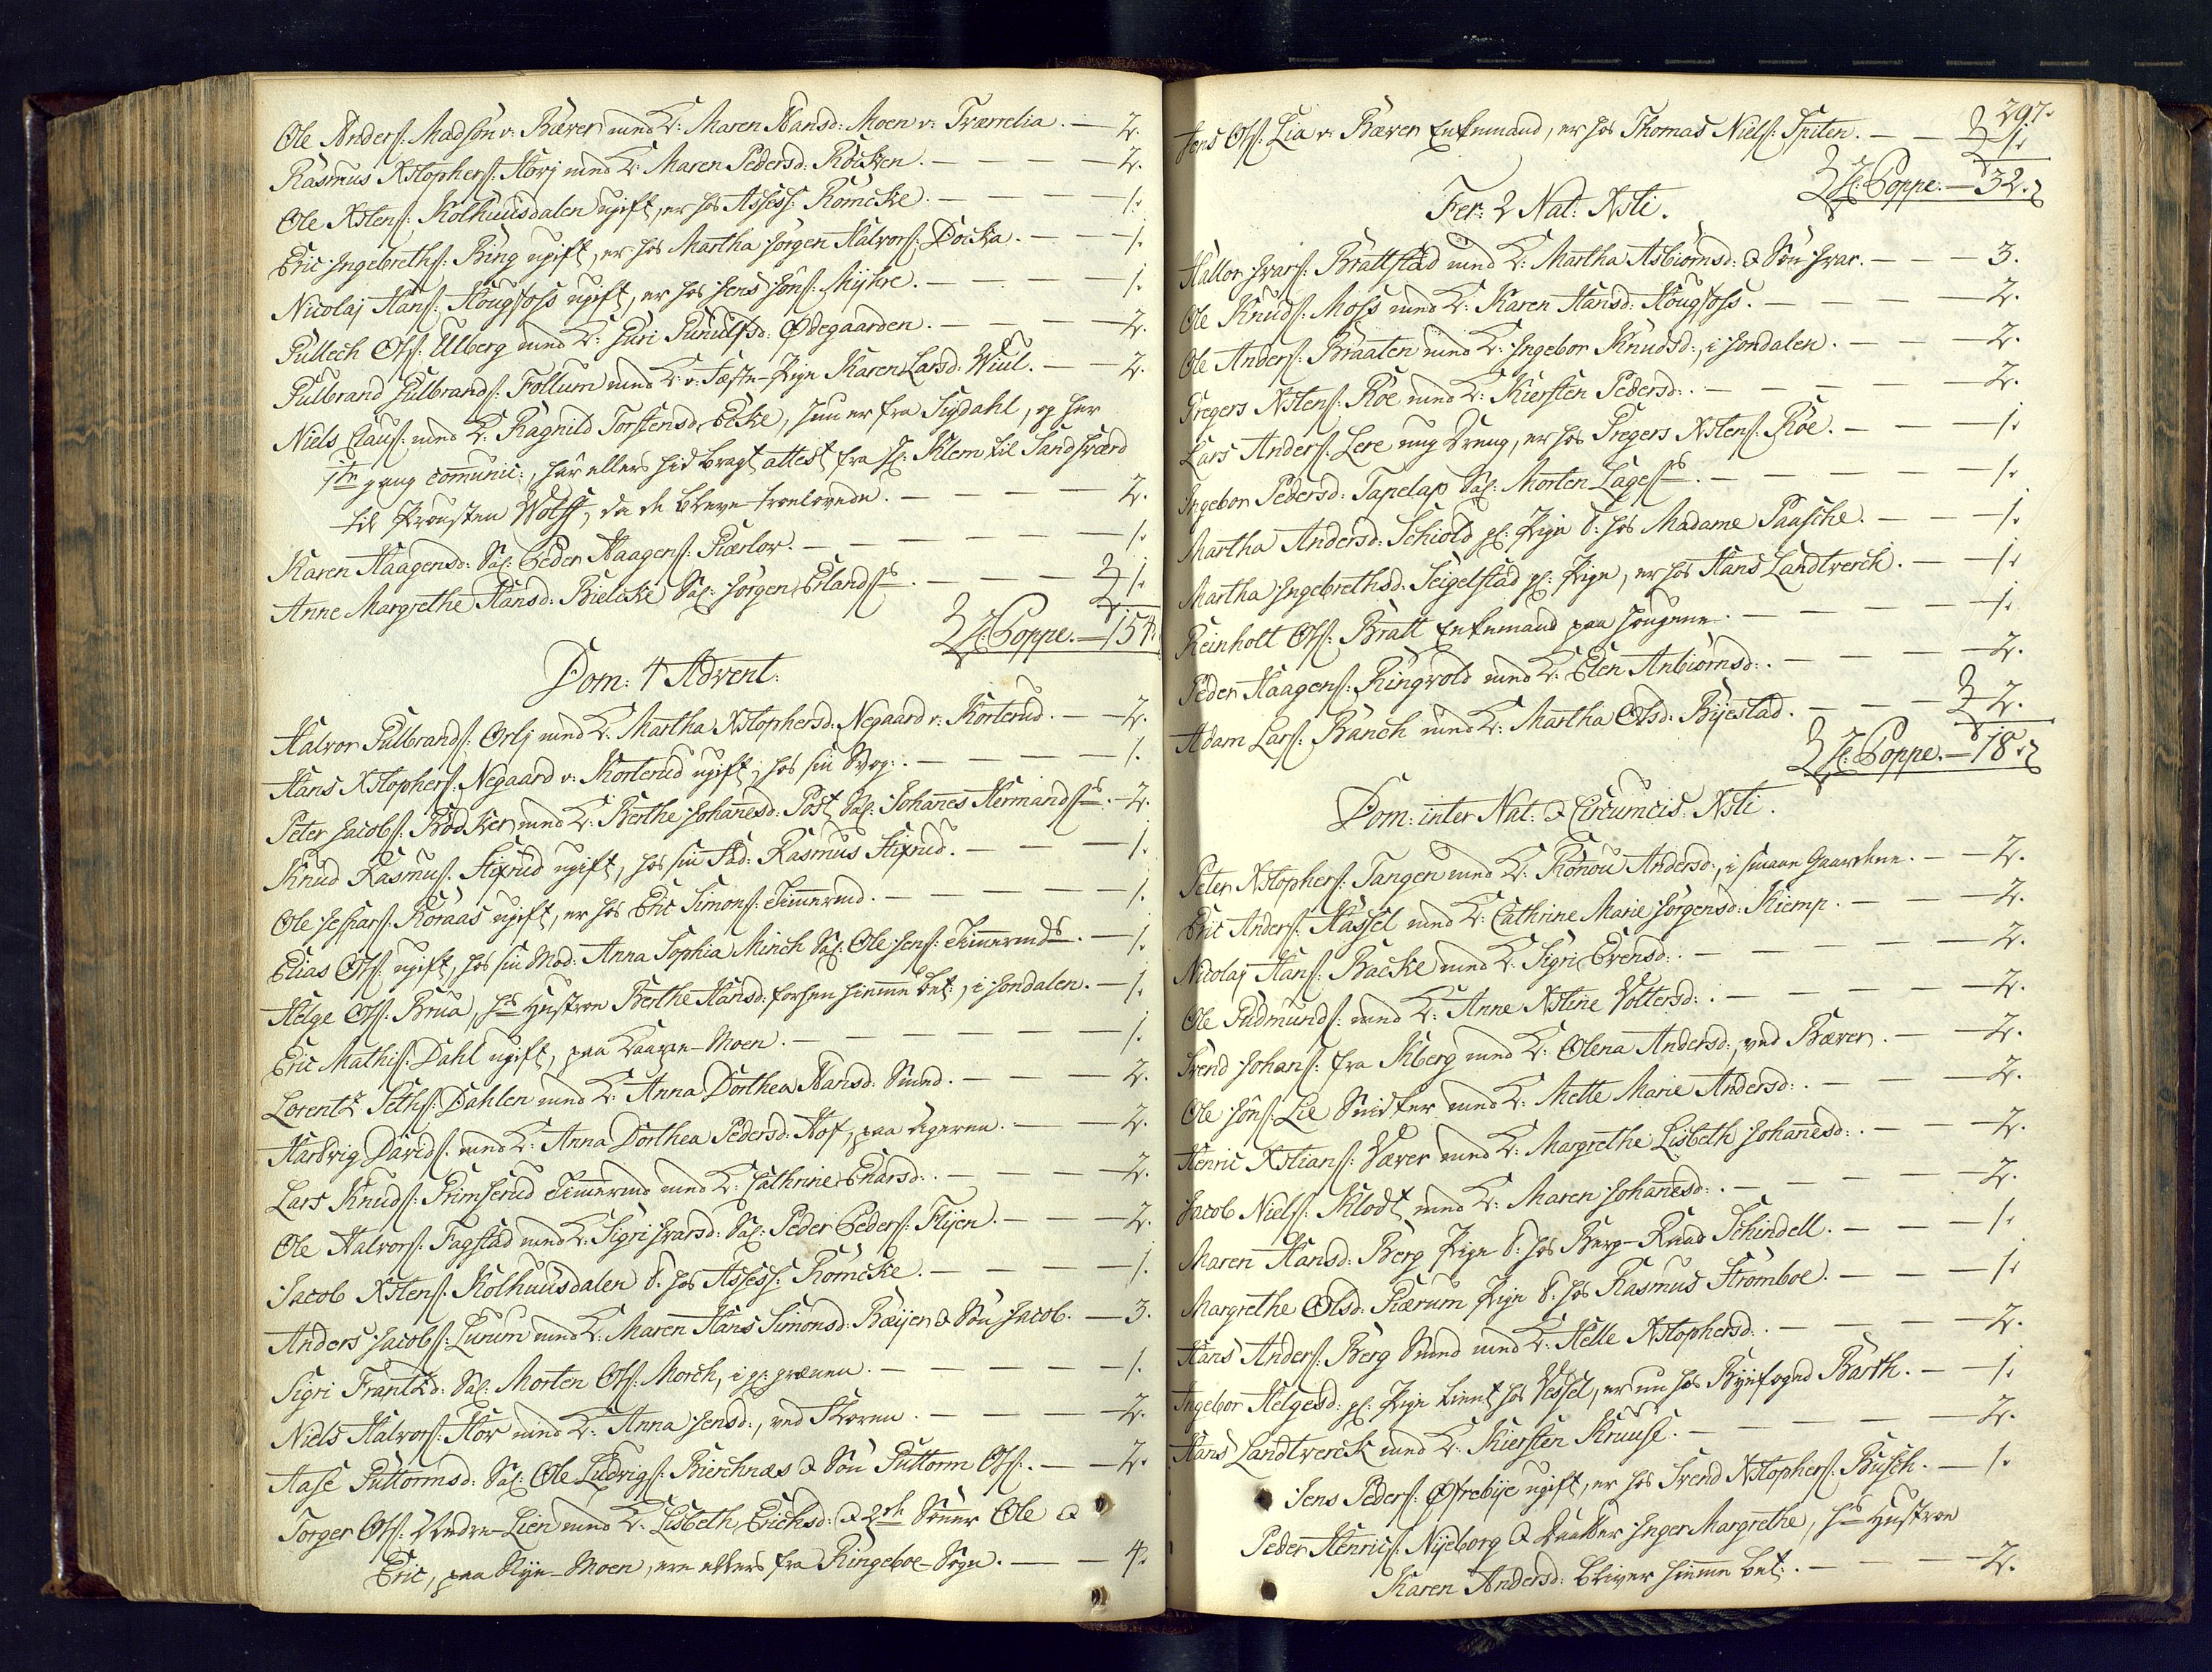 Ole Anders: Madsøn v: Bæver med K: Maren Hansd: Moen v: Tværrelia. — 2.
Rasmus Xstophers: Horj med K: Maren Pedersd: Röcken. — — — 2.
Ole Xstens: Kolhuusdalen ugift, er hos Assess: Römcke. — — — 1.
Eric Ingebreths: Ring ugift, er hos Martha Jörgen Halvors: Docka. — — 1.
Nicolaj Hans: Hougfoss ugift, er hos Jens Jöns: Myhre. — — — 1.
Gullech Ols: Ulberg med K: Guri Gunulfsd: Ødegaarden. — — — 2.
Gulbrand Gulbrands: Follum med K: v: Fæste-Pige Karen Larsd: Wiul. — — 2.
Niels Claus: med K: Ragnild Torstensd. Ecke, hun er fra Sigdahl, og her
1ste gang comunic:, har ellers hid bragt attest fra H: Klem til Sandsværd
til Provsten Wolff, da de bleve trolovede. — — — — 2.
Karen Haagensd: Sal: Peder Haagens: Giærlov. — — — — — 1.
Anne Margrethe Hansd: Bielcke Sal: Jörgen Erlands: — — — 1.
H: Poppe. — 154.
Dom: 4 Advent.
Halvor Gulbrands: Orlj med K: Martha Xstophersd: Negaard v: Korterud. — — 2.
Hans Xstophers: Negaard v: Korterud ugift, hos sin Svog: — — — — 1.
Peter Jacobs: Bödker med K: Berthe Johanesd: Post Sal: Johanes Hermands: — 2.
Knud Rasmus: Stixrud ugift, hos sin Fad: Rasmus Stixrud. — — — 1.
Ole Jespars: Koraas ugift, er hos Eric Simons: Timermd. — — — — 1.
Elias Ols: ugift, hos sin Mod: Anna Sophia Minch Sal: Ole Jens: Timermds. — 1.
Helge Ols: Brua, hs Hustroe Berthe Hansd: forhen hiemme bet:, i Jondalen. — 1.
Eric Mathis: Dahl ugift, paa Haave-Moen. — — — — — 1.
Lorentz Seths: Dahlen med K: Anna Dorthea Hansd: Smed. — — — 2.
Hartvig Davids: med K: Anna Dorthea Pedersd: Hof, paa Ageren. — — 2.
Lars Knuds: Grimserud Timermd med K: Cathrine Enarsd: — — — 2.
Ole Halvors: Fagstad med K: Sigri Ivarsd: Sal: Peder Peders: Flyen. — — — 2.
Jacob Xstens: Kolhuusdalen T: hos Assess: Römcke. — — — — 1.
Anders Jacobs: Lurum med K: Maren Hans Simonsd: Bæijer & Sön Jacob. — 3.
Sigri Frantzd: Sal: Morten Ols: Morch, i gl: grænen. — — — — 1.
Niels Halvors: Hov med K: Anna Jensd:, ved Skoven. — — — — 2.
Aase Guttormsd: Sal: Ole Ludvigs: Bierchnæs & Sön Guttorm Ols: — — 2.
Torger Ols: Nedre-Lien med K: Lisbeth Erichsd: & 2de Sönner Ole &
Eric, paa Nye-Moen, ere ellers fra Ringeboe-Sogn. — — 4.
297.
Jens Ols: Lia v: Bæver Enkemand, er hos Thomas Niels: Spiten. — — 1.
H: Poppe. — 32.
Fer: 2 Nat: Xsti.
Hallor Ivars: Brattstad med K: Martha Asbiörnsd: & Sön Ivar. — — — 3.
Ole Knuds: Moss med K: Karen Hansd: Hougfoss. — — — — 2.
Ole Anders: Braaten med K: Ingebor Knudsd:, i Jondalen. — — — 2.
Gregers Xstens: Röe med K: Kiersten Pedersd: — — — — 2.
Lars Anders: Lere ung Dreng, er hos Gregers Xstens: Röe. — — — 1.
Ingebor Pedersd: Tapelap Sal: Morten Lages: — — — — — 1.
Martha Andersd: Schiold gl: Pige T: hos Madame Paasche. — — — 1.
Martha Ingebrethsd: Seigelstad gl: Pige, er hos Hans Landtverck. — — 1.
Reinholt Ols: Bratt Enkemand paa Hougene. — — — — 1.
Peder Haagens: Ringvold med K: Elen Anbiörnsd: — — — — 2.
Adam Lars: Banch med K: Martha Olsd: Byestad. — — — 2.
H: Poppe. — 18.
Dom: inter Nat: & Circumcis: Xsti.
Peter Xstophers: Tangen med K: Rönou Andersd:, i smaae Gaardene. — — 2.
Eric Anders: Hassel med K: Cathrine Marie Jörgensd: Kiemp. — — — 2.
Nicolaj Hans: Backe med K: Sigri Evensd: — — — — — 2.
Ole Gudmunds: med K: Anne Xstine Voltersd: — — — — 2.
Svend Johans: fra Kberg med K: Olena Andersd:, ved Bæver. — — 2.
Ole Jöns: Lie Snidker med K: Mette Marie Andersd: — — — 2.
Henric Xstians: Væver med K: Margrethe Lisbeth Johanesd: — — 2.
Jacob Niels: Klodt med K: Maren Johanesd: — — — — 2.
Maren Hansd: Berg Pige T: hos Berg-Raad Schindell. — — — 1.
Margrethe Olsd: Giærum Pige T: hos Rasmus Strömboe. — — — 1.
Hans Anders: Berg Smed med K: Helle Xstophersd: — — — — 2.
Ingebor Helgesd: gl: Pige tient hos Vessel, er nu hos Byefogd Barth. — — 1.
Hans Landtverck med K: Kiersten Kruuse. — — — — 2.
Jens Peders: Øfrebye ugift, er hos Svend Xstophers: Busch. — 1.
Peder Henrics: Nyeborg & Daatter Inger Margrethe, hs Hustroe
Karen Andersd: bliver hiemme bet: — — — — 2.